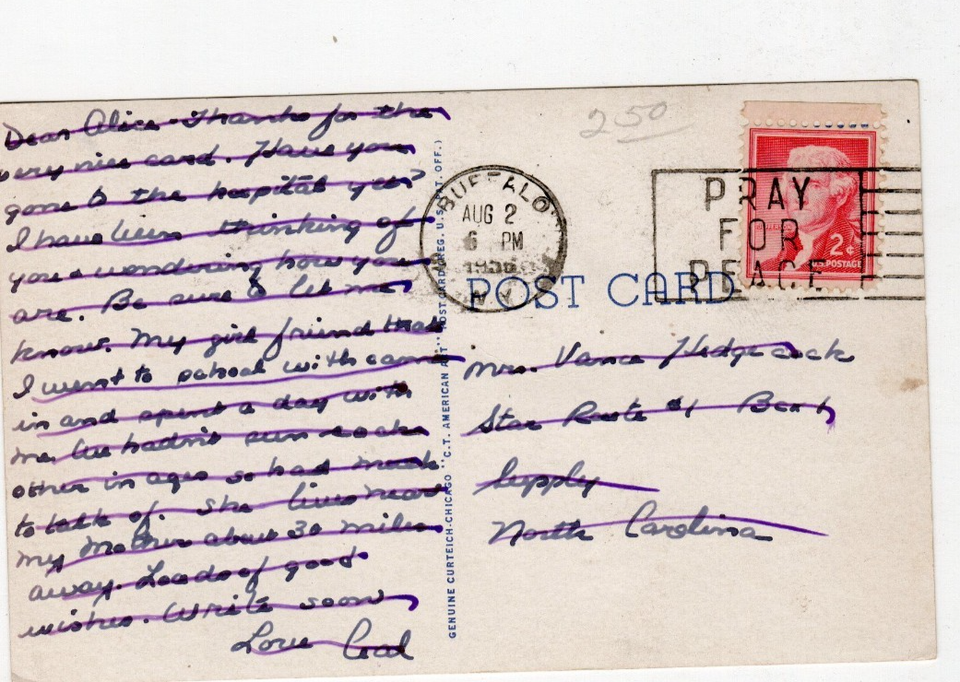 Dear Alice - Thanks for the
very nice card. Have you
gone to the hospital yet?
I have been thinking of
you & wondering how you
are. Be sure to let me
know. My girl friend that
I went to school with came
in and spent a day with
me. We hadn't seen each
other in ages so had much
to talk of. She lives near
my Mother about 30 miles
away. Loads of good
wishes. Write soon
Love
GENUINE CURTEICH-CHICAGO "C.T. AMERICAN ART" POST CARD (REG. U.S. PAT. OFF.)
250
BUFFALO
AUG 2
6 PM
1956
N.Y.
PRAY
FOR
PEACE
2¢
U.S. POSTAGE
POST CARD
Mrs. Vance Hedgecock
Star Route #1 Box 1
Supply
North Carolina